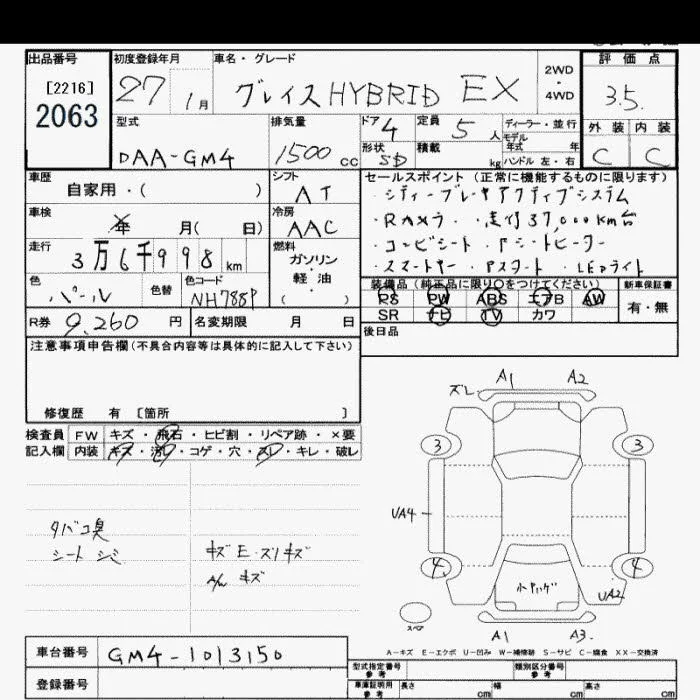 出品番号 初度登録年月 車名・グレード 2WD・4WD 評価点
[2216]
2063
27 1月 グレイス HYBRID EX 3.5.
型式 排気量 ドア 4 定員 5人 ディーラー・並行 外装 内装
モデル年式 年
DAA-GM4 1500cc 形状 SD 積載 kg ハンドル 左・右 C C
車歴 シフト セールスポイント (正常に機能するものに限ります)
自家用・( ) AT
・シティーブレーキアクティブシステム
車検 年 月( 日) 冷房 AAC
・Rカメラ ・走行37,000km台
走行 3万6千998km 燃料 ガソリン・軽油・( )
・コンビシート ・Aシートヒーター
・スマートキー ・Pスタート ・LEDライト
色 色替 色コード
パール NH788P
装備品 (純正品に限り○をつけてください) 新車保証書
PS PW ABS エアB AW 有・無
SR ナビ TV カワ
R券 9,260円 名変期限 月 日
後日品
注意事項申告欄(不具合内容等は具体的に記入して下さい)
修復歴 有 [箇所 ]
検査員 FW キズ・飛石・ヒビ割・リペア跡・×要
記入欄 内装 キズ・汚レ・コゲ・穴・スレ・キレ・破レ
タバコ臭
シート シミ
キズ E・スリキズ
A/W キズ
ズレ A1 A2
3 3
UA4
4 4
UA2
スペア
A1 A3.
A-キズ E-エクボ U-凹み W-補修跡 S-サビ C-腐食 XX-交換済
車台番号 GM4-1013150
型式指定番号 参考 類別区分番号 参考
登録番号
車庫証明用 参考 長さ cm 幅 cm 高さ cm